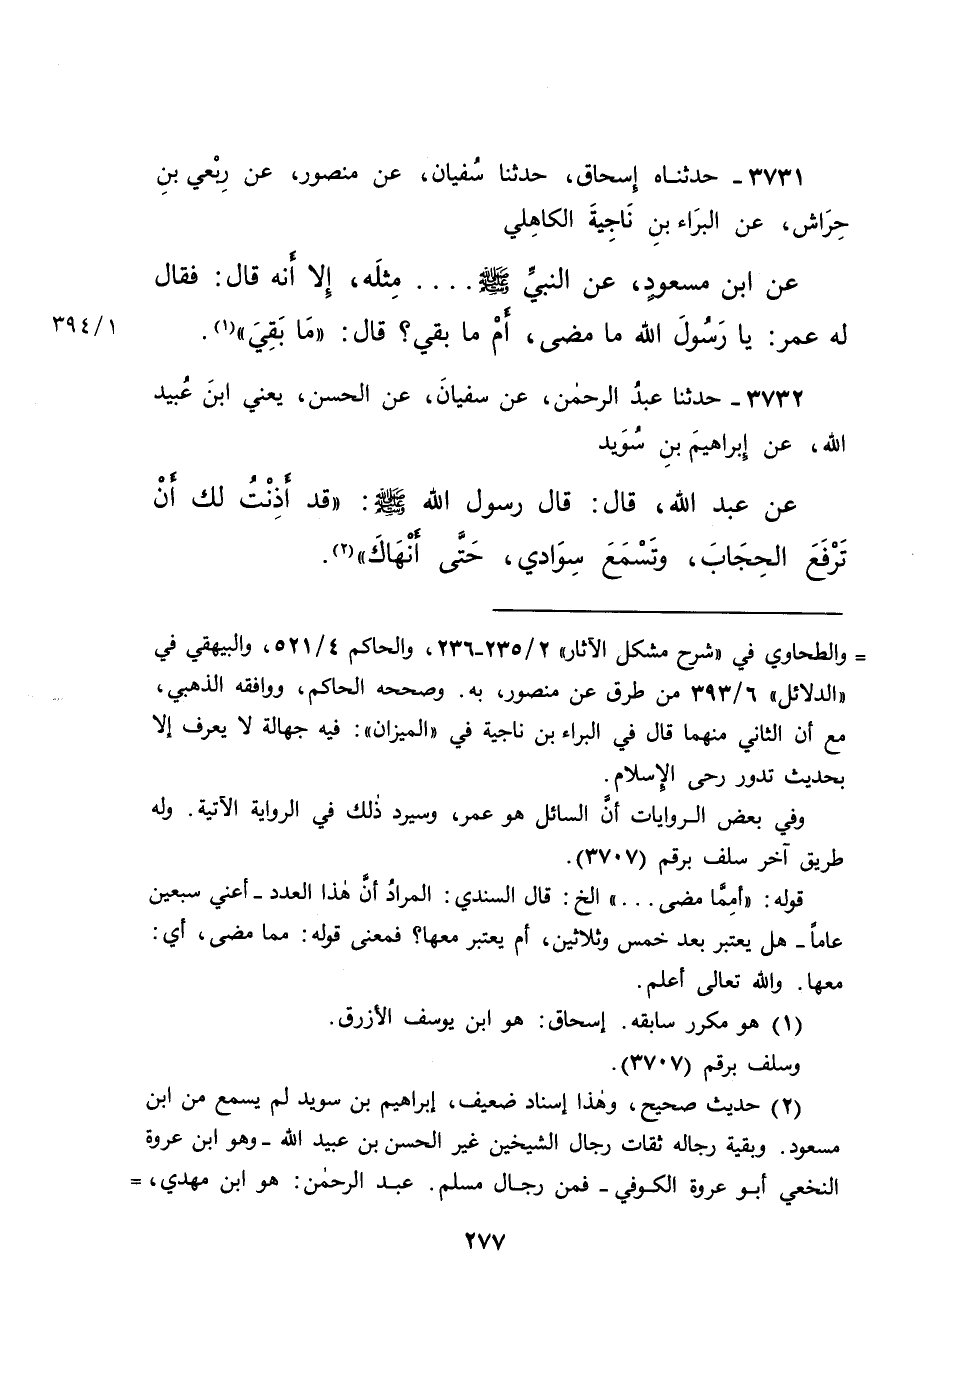 ٣٧٣١ ـ حدثنـاه إِسحاق، حدثنا سُفيان، عن منصور، عن رِبْعي بنِ
حِرَاش، عن البرَاء بنِ نَاجِيةَ الكاهِلي
عن ابن مسعودٍ، عن النبيِّ ﷺ .... مِثلَه، إِلا أَنه قال: فقال
له عمر: يا رَسُولَ الله ما مضى، أَمْ ما بقي؟ قال: «مَا بَقِيَ»(١).
٣٩٤/١
٣٧٣٢ ـ حدثنا عبدُ الرحمٰن، عن سفيانَ، عن الحسن، يعني ابنَ عُبيد
الله، عن إِبراهيمَ بنِ سُوَيد
عن عبد الله، قال: قال رسول الله ﷺ: «قد أَذِنْتُ لك أَنْ
تَرْفَعَ الحِجَابَ، وتَسْمَعَ سِوَادي، حَتَّى أَنْهَاكَ»(٢).
= والطحاوي في «شرح مشكل الآثار» ٢/ ٢٣٥ـ٢٣٦، والحاكم ٥٢١/٤، والبيهقي في
«الدلائل» ٣٩٣/٦ من طرق عن منصور، به. وصححه الحاكم، ووافقه الذهبي،
مع أن الثاني منهما قال في البراء بن ناجية في «الميزان»: فيه جهالة لا يعرف إلا
بحديث تدور رحى الإِسلام.
وفي بعض الـروايات أنَّ السائل هو عمر، وسيرد ذٰلك في الرواية الآتية. وله
طريق آخر سلف برقم (٣٧٠٧).
قوله: «أمِمَّا مضى...» الخ: قال السندي: المرادُ أنَّ هٰذا العدد ـ أعني سبعين
عاماً ـ هل يعتبر بعد خمس وثلاثين، أم يعتبر معها؟ فمعنى قوله: مما مضى، أي:
معها. والله تعالى أعلم.
(١) هو مكرر سابقه. إسحاق: هو ابن يوسف الأزرق.
وسلف برقم (٣٧٠٧).
(٢) حديث صحيح، وهٰذا إسناد ضعيف، إبراهيم بن سويد لم يسمع من ابن
مسعود. وبقية رجاله ثقات رجال الشيخين غير الحسن بن عبيد الله ـ وهو ابن عروة
النخعي أبـو عروة الكـوفي ـ فمن رجـال مسلم. عبـد الرحمٰن: هو ابن مهدي، =
٢٧٧